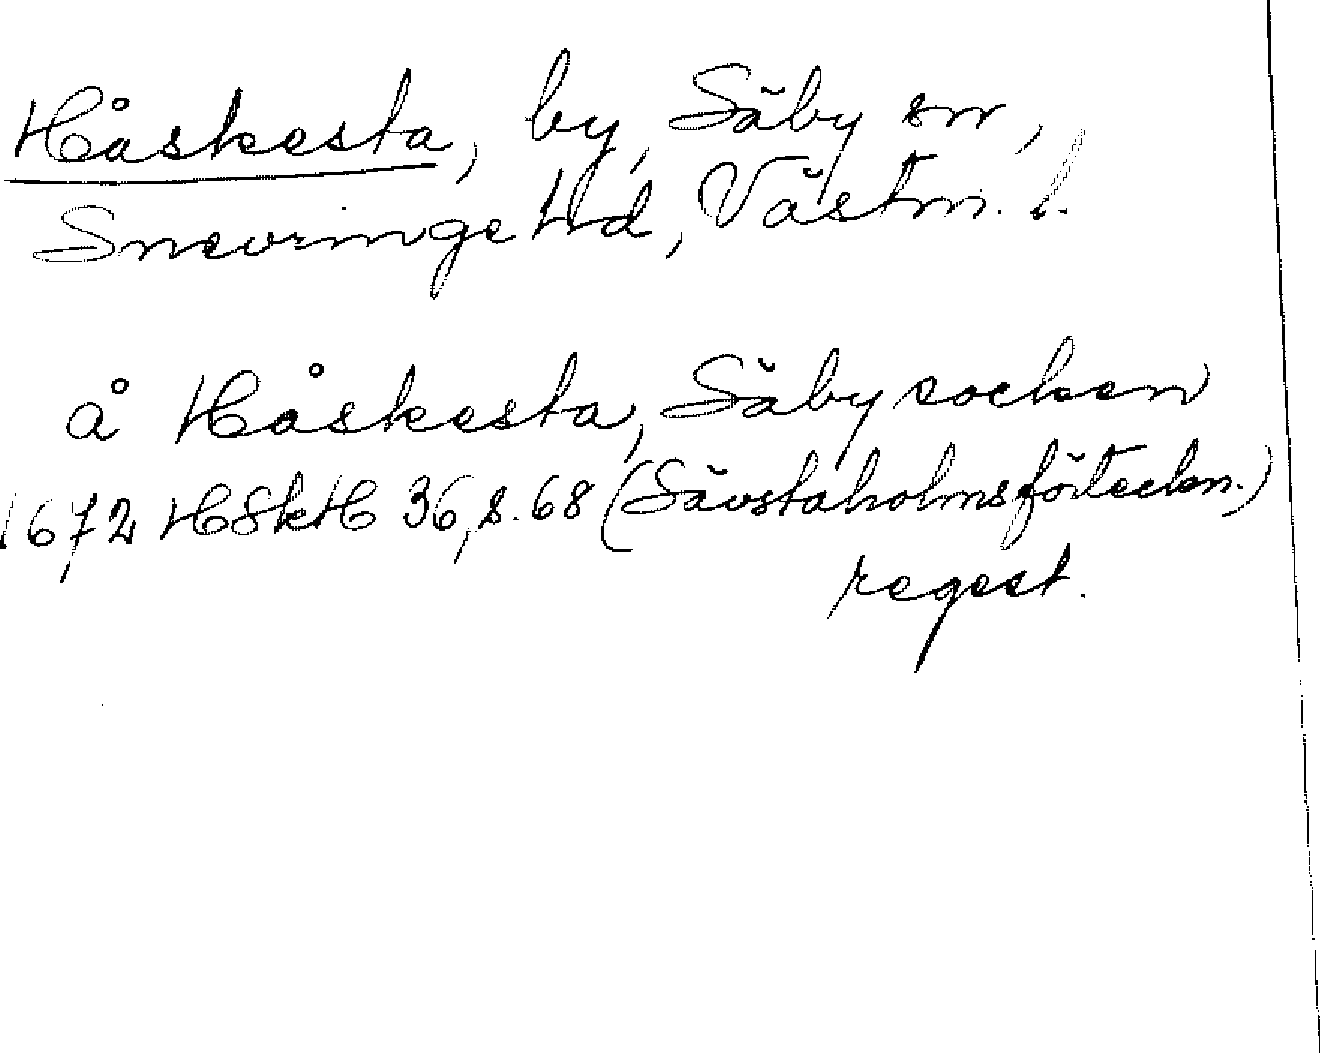 Håskesta, by, Säby sn,
Snevringe hd, Västm. l.
å Håskesta, Säby socken
1672 HSkH 36, s. 68 (Sävstaholmsförteckn.)
regest.